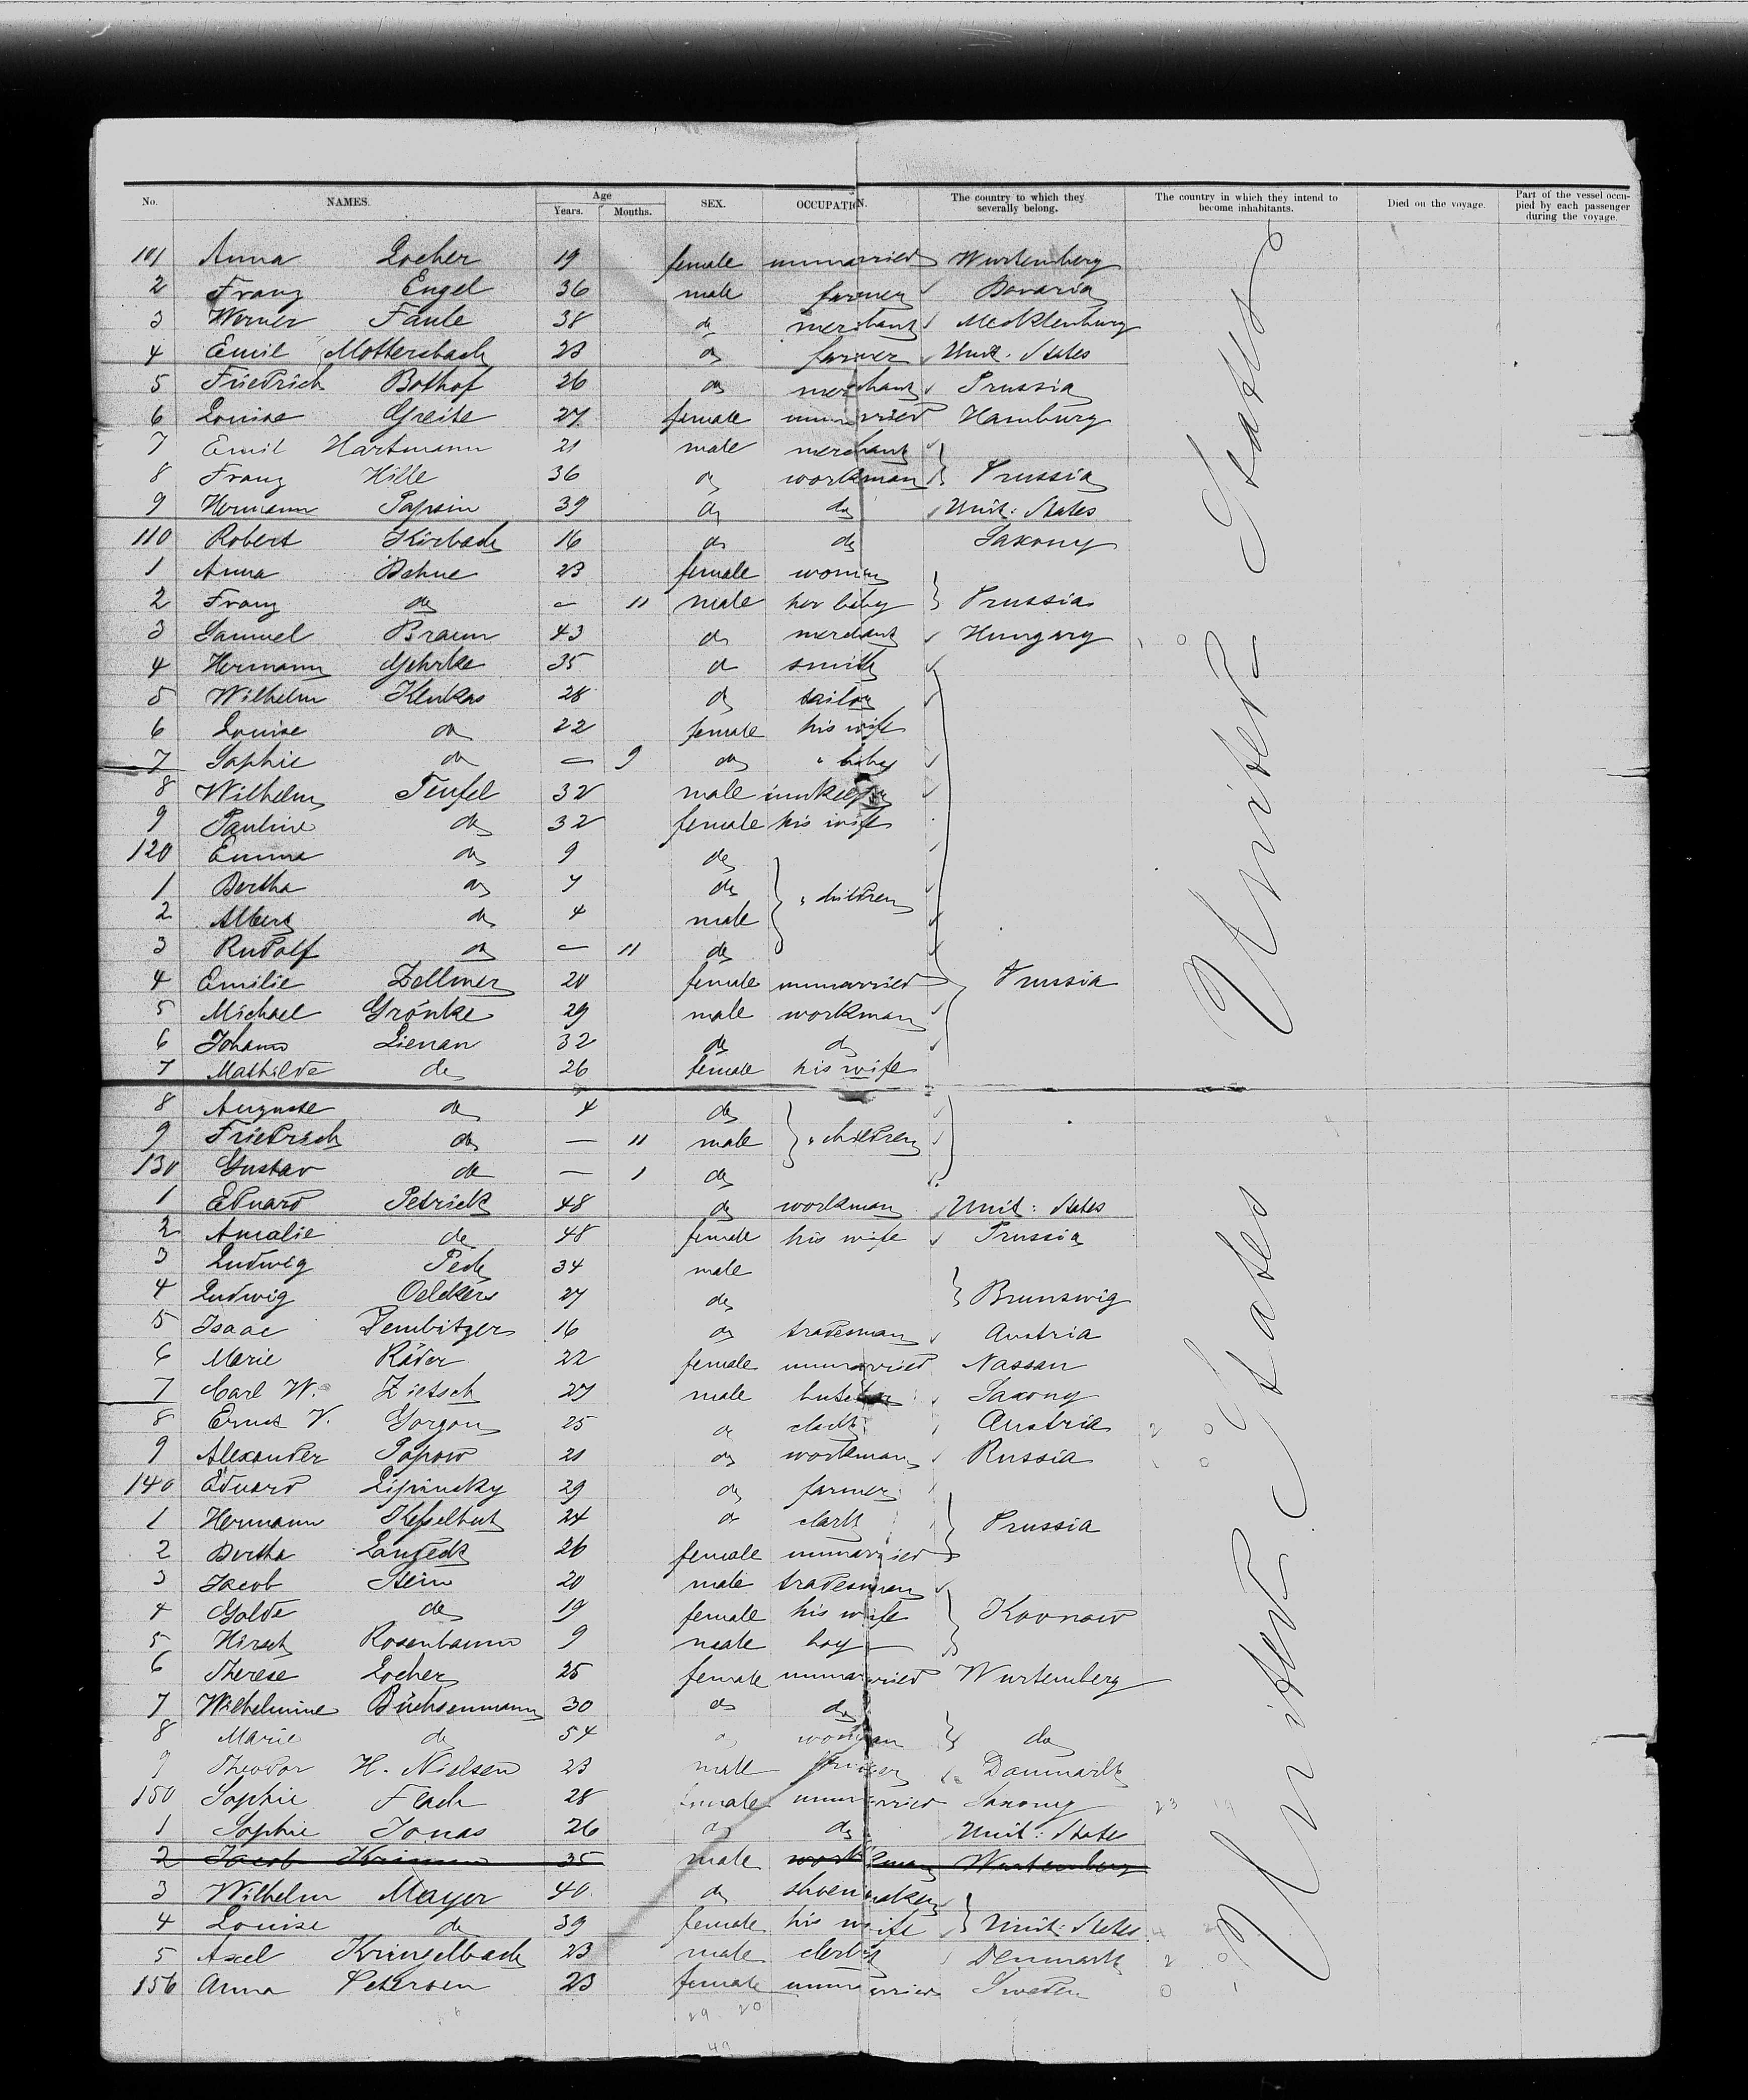 No. NAMES. Age Years. Months. SEX. OCCUPATION. The country to which they severally belong. The country in which they intend to become inhabitants. Died on the voyage. Part of the vessel occupied by each passenger during the voyage.
101 Anna Locher 19 female unmarried Wurtemberg
2 Franz Engel 36 male farmer Bavaria
3 Werner Faule 38 do merchant Mecklenburg
4 Emil Mottersbach 23 do farmer Unit. States
5 Friedrich Bothof 26 do merchant Prussia
6 Louise Greite 27 female unmarried Hamburg
7 Emil Hartmann 21 male merchant
8 Franz Hille 36 do workman Prussia
9 Hermann Papsin 39 do do Unit: States
110 Robert Kirbach 16 do do Saxony
1 Anna Behne 23 female woman
2 Franz do — 11 male her baby Prussia
3 Samuel Braun 43 do merchant Hungary
4 Hermann Gehrke 35 do smith
5 Wilhelm Klenkas 28 do tailor
6 Louise do 22 female his wife
7 Sophie do — 9 do " baby
8 Wilhelm Teufel 32 male innkeeper
9 Pauline do 32 female his wife
120 Emma do 9 do
1 Bertha do 7 do " children
2 Albert do 4 male
3 Rudolf do — 11 do
4 Emilie Zellmer 20 female unmarried Prussia
5 Michael Grönke 29 male workman
6 Johann Lienau 32 do do
7 Mathilde do 26 female his wife
8 Auguste do 4 do
9 Friedrich do — 11 male " children
130 Gustav do — 1 do
1 Eduard Petrick 48 do workman Unit: States
2 Amalie do 48 female his wife Prussia
3 Ludwig Pech 34 male
4 Ludwig Oelckers 27 do Brunswig
5 Isaac Dembitzer 16 do tradesman Austria
6 Marie Räder 22 female unmarried Nassau
7 Carl W. Zietsch 27 male butcher Saxony
8 Ernst V. Gorgon 25 do clark Austria
9 Alexander Popow 21 do workman Russia
140 Eduard Lipinsky 29 do farmer
1 Hermann Kesselhut 24 do clark Prussia
2 Bertha Landeck 26 female unmarried
3 Jacob Stein 20 male tradesman
4 Golde do 19 female his wife Kovnow
5 Hirsch Rosenbaum 9 male boy
6 Therese Locher 25 female unmarried Wurtemberg
7 Wilhelmine Büchsenmann 30 do do
8 Marie do 54 do woman do
9 Theodor H. Nielsen 23 male farmer Danmark
150 Sophie Flach 28 female unmarried Saxony
1 Sophie Jonas 26 do do Unit: States
2 Jacob 35 male workman Wurtemberg
3 Wilhelm Mayer 40 do shoemaker
4 Louise do 39 female his wife Unit: States
5 Axel Kringelbach 23 male clerk Denmark
156 Anna Petersen 23 female unmarried Sweden
29 20
49
United States
United States